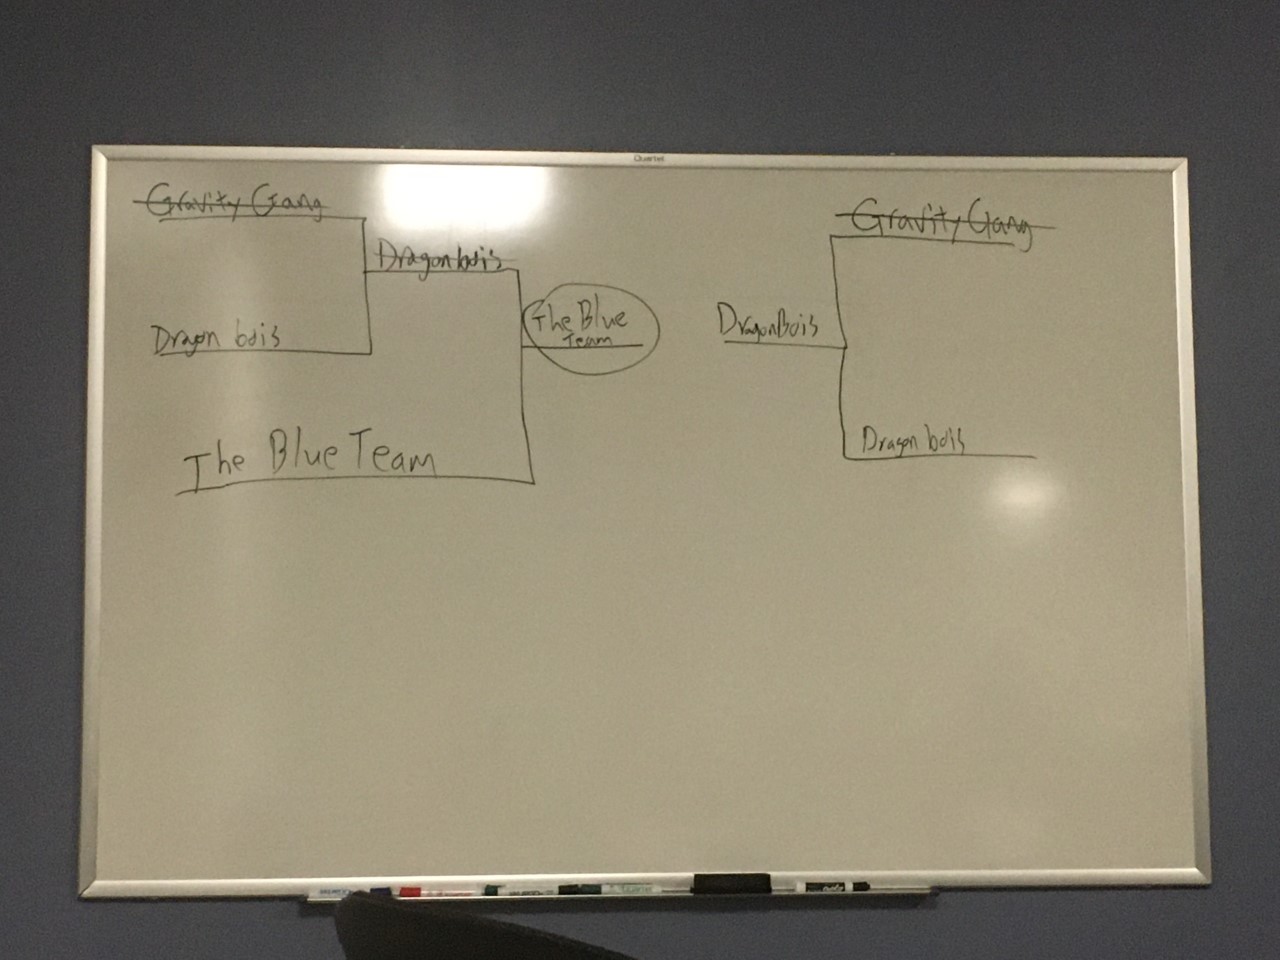 Quartet
Gravity Gang
Dragon bois
Dragon bois
The Blue Team
The Blue
Team
Gravity Gang
DragonBois
Dragon bois
Quartet